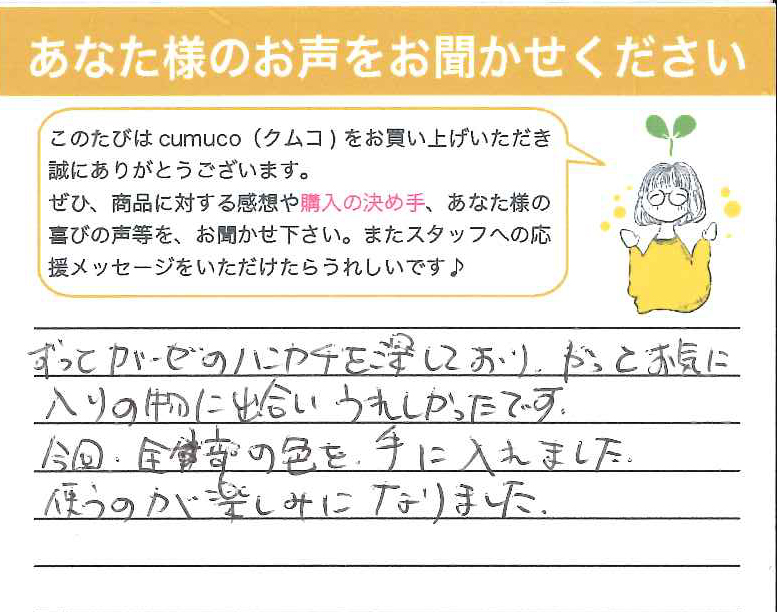 あなた様のお声をお聞かせください
このたびは cumuco（クムコ）をお買い上げいただき
誠にありがとうございます。
ぜひ、商品に対する感想や購入の決め手、あなた様の
喜びの声等を、お聞かせ下さい。またスタッフへの応
援メッセージをいただけたらうれしいです♪
ずっとガーゼのハンカチを探しており、やっとお気に
入りの物に出合いうれしかったです.
今回.全部の色を.手に入れました.
使うのが楽しみになりました.